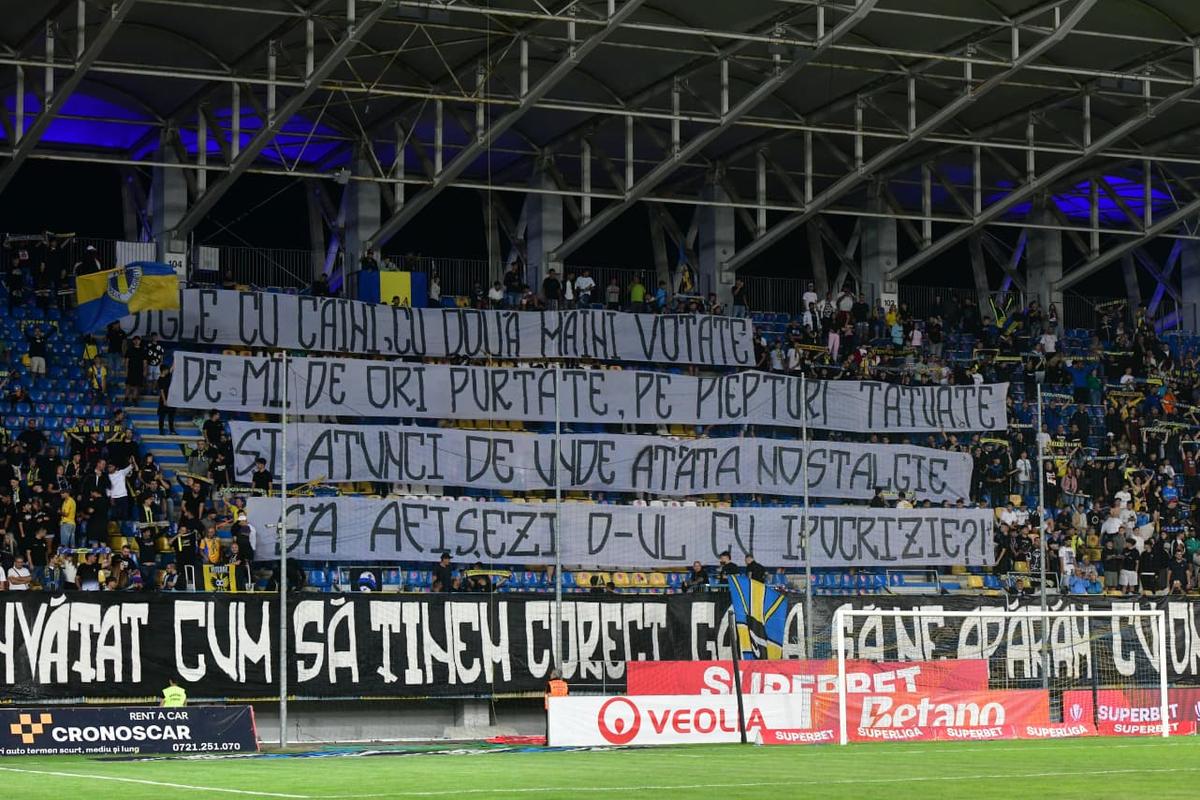 104
102
SIGLE CU CÂINI, CU DOUĂ MÂINI VOTATE
DE MII DE ORI PURTATE, PE PIEPTURI TATUATE
ȘI ATUNCI DE UNDE ATÂTA NOSTALGIE
SĂ AFIȘEZI D-UL CU IPOCRIZIE?!
NVĂȚAT CUM SĂ ȚINEM CORECT SĂ NE APĂRĂM CU
RENT A CAR
CRONOSCAR
auto termen scurt, mediu și lung
0721.251.070
VEOLIA
SUPERBET
SUPERBET
SUPERLIGA
Betano
SUPERBET
SUPERLIGA
SUPERBET
SUPERBET
SUPERLIGA